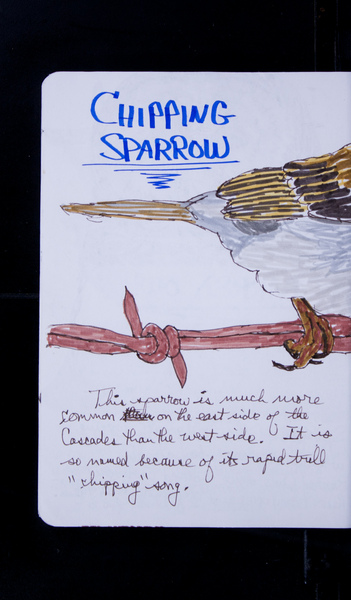 CHIPPING
SPARROW
This sparrow is much more
common on the east side of the
Cascades than the west side. It is
so named because of its rapid trill
"chipping" song.